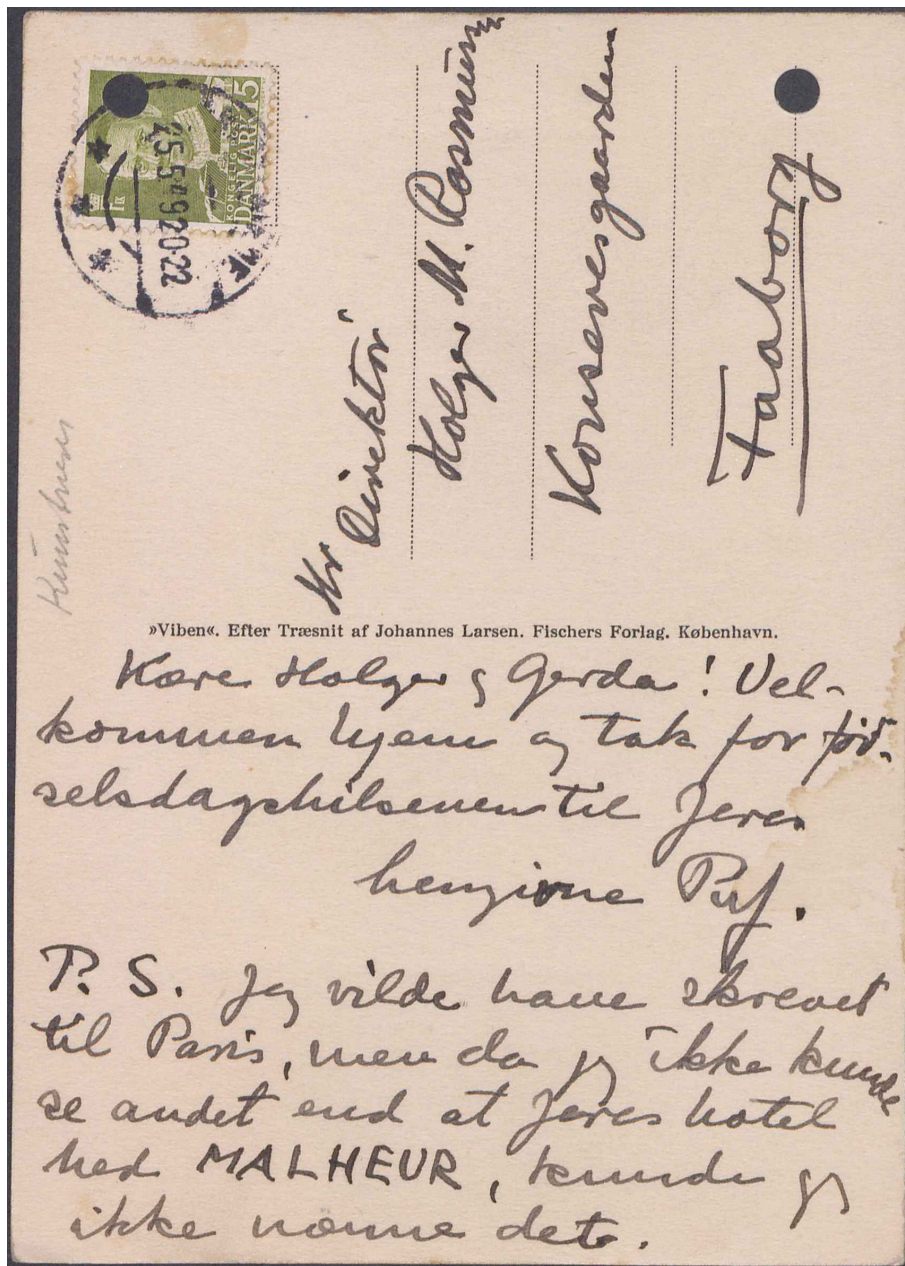 15
KONGELIG POST
DANMARK
25.5.49 20-22
Hr Direktör
Holger M. Rasmussen
Konservesgaarden
Faaborg
Kunstneren
»Viben«. Efter Træsnit af Johannes Larsen. Fischers Forlag. København.
Kære Holger & Gerda! Vel-
kommen hjem og tak for föd-
selsdagshilsenen til Jeres
hengivne Puf.
P. S. Jeg vilde have skrevet
til Paris, men da jeg ikke kunde
se andet end at Jeres hotel
hed MALHEUR, kunde jeg
ikke nænne det.